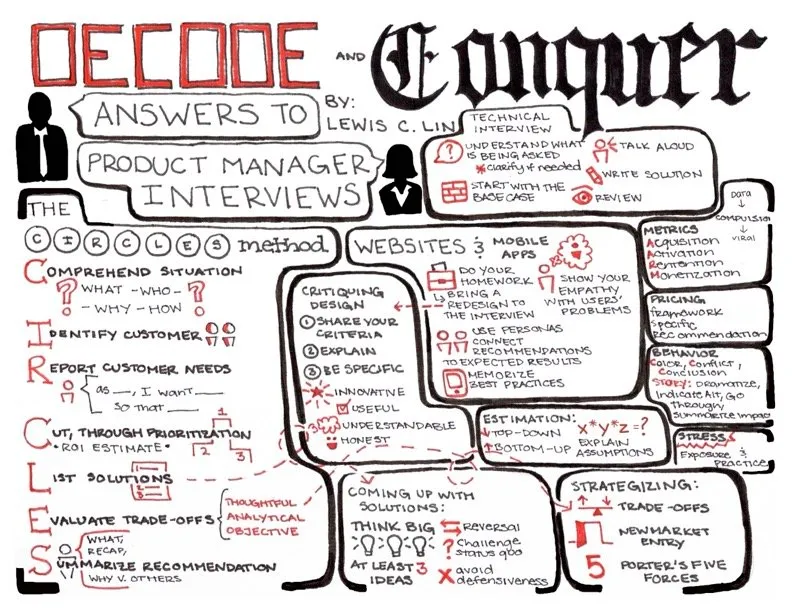 DECODE AND Conquer
ANSWERS TO
BY:
LEWIS C. LIN
PRODUCT MANAGER
INTERVIEWS
TECHNICAL
INTERVIEW
? UNDERSTAND WHAT
IS BEING ASKED
*clarify if needed
START WITH THE
BASE CASE
TALK ALOUD
WRITE SOLUTION
REVIEW
THE
CIRCLES method
COMPREHEND SITUATION
? WHAT - WHO - ?
- WHY - HOW
IDENTIFY CUSTOMER
REPORT CUSTOMER NEEDS
as __, I want __
so that __
CUT, THROUGH PRIORITIZATION
• ROI ESTIMATE •
1
2
3
LIST SOLUTIONS
EVALUATE TRADE-OFFS
THOUGHTFUL
ANALYTICAL
OBJECTIVE
SUMMARIZE RECOMMENDATION
WHAT,
RECAP,
WHY V. OTHERS
WEBSITES & MOBILE
APPS
DO YOUR
HOMEWORK
BRING A
REDESIGN TO
THE INTERVIEW
SHOW YOUR
EMPATHY
WITH USERS'
PROBLEMS
USE PERSONAS
CONNECT
RECOMMENDATIONS
TO EXPECTED RESULTS
MEMORIZE
BEST PRACTICES
CRITIQUING
DESIGN
1 SHARE YOUR
CRITERIA
2 EXPLAIN
3 BE SPECIFIC
INNOVATIVE
USEFUL
UNDERSTANDABLE
HONEST
DATA
COMPULSION
VIRAL
METRICS
Acquisition
Activation
Retention
Monetization
PRICING
framework
specific
recommendation
BEHAVIOR
Color, Conflict,
Conclusion
STORY: Dramatize,
Indicate Alt, Go
Through,
Summarize Impact
STRESS
Exposure &
Practice
ESTIMATION:
TOP-DOWN
BOTTOM-UP
x*y*z=?
EXPLAIN
ASSUMPTIONS
COMING UP WITH
SOLUTIONS:
THINK BIG
AT LEAST 3
IDEAS
Reversal
? Challenge
status quo
X avoid
defensiveness
STRATEGIZING:
TRADE-OFFS
NEW MARKET
ENTRY
5 PORTER'S FIVE
FORCES